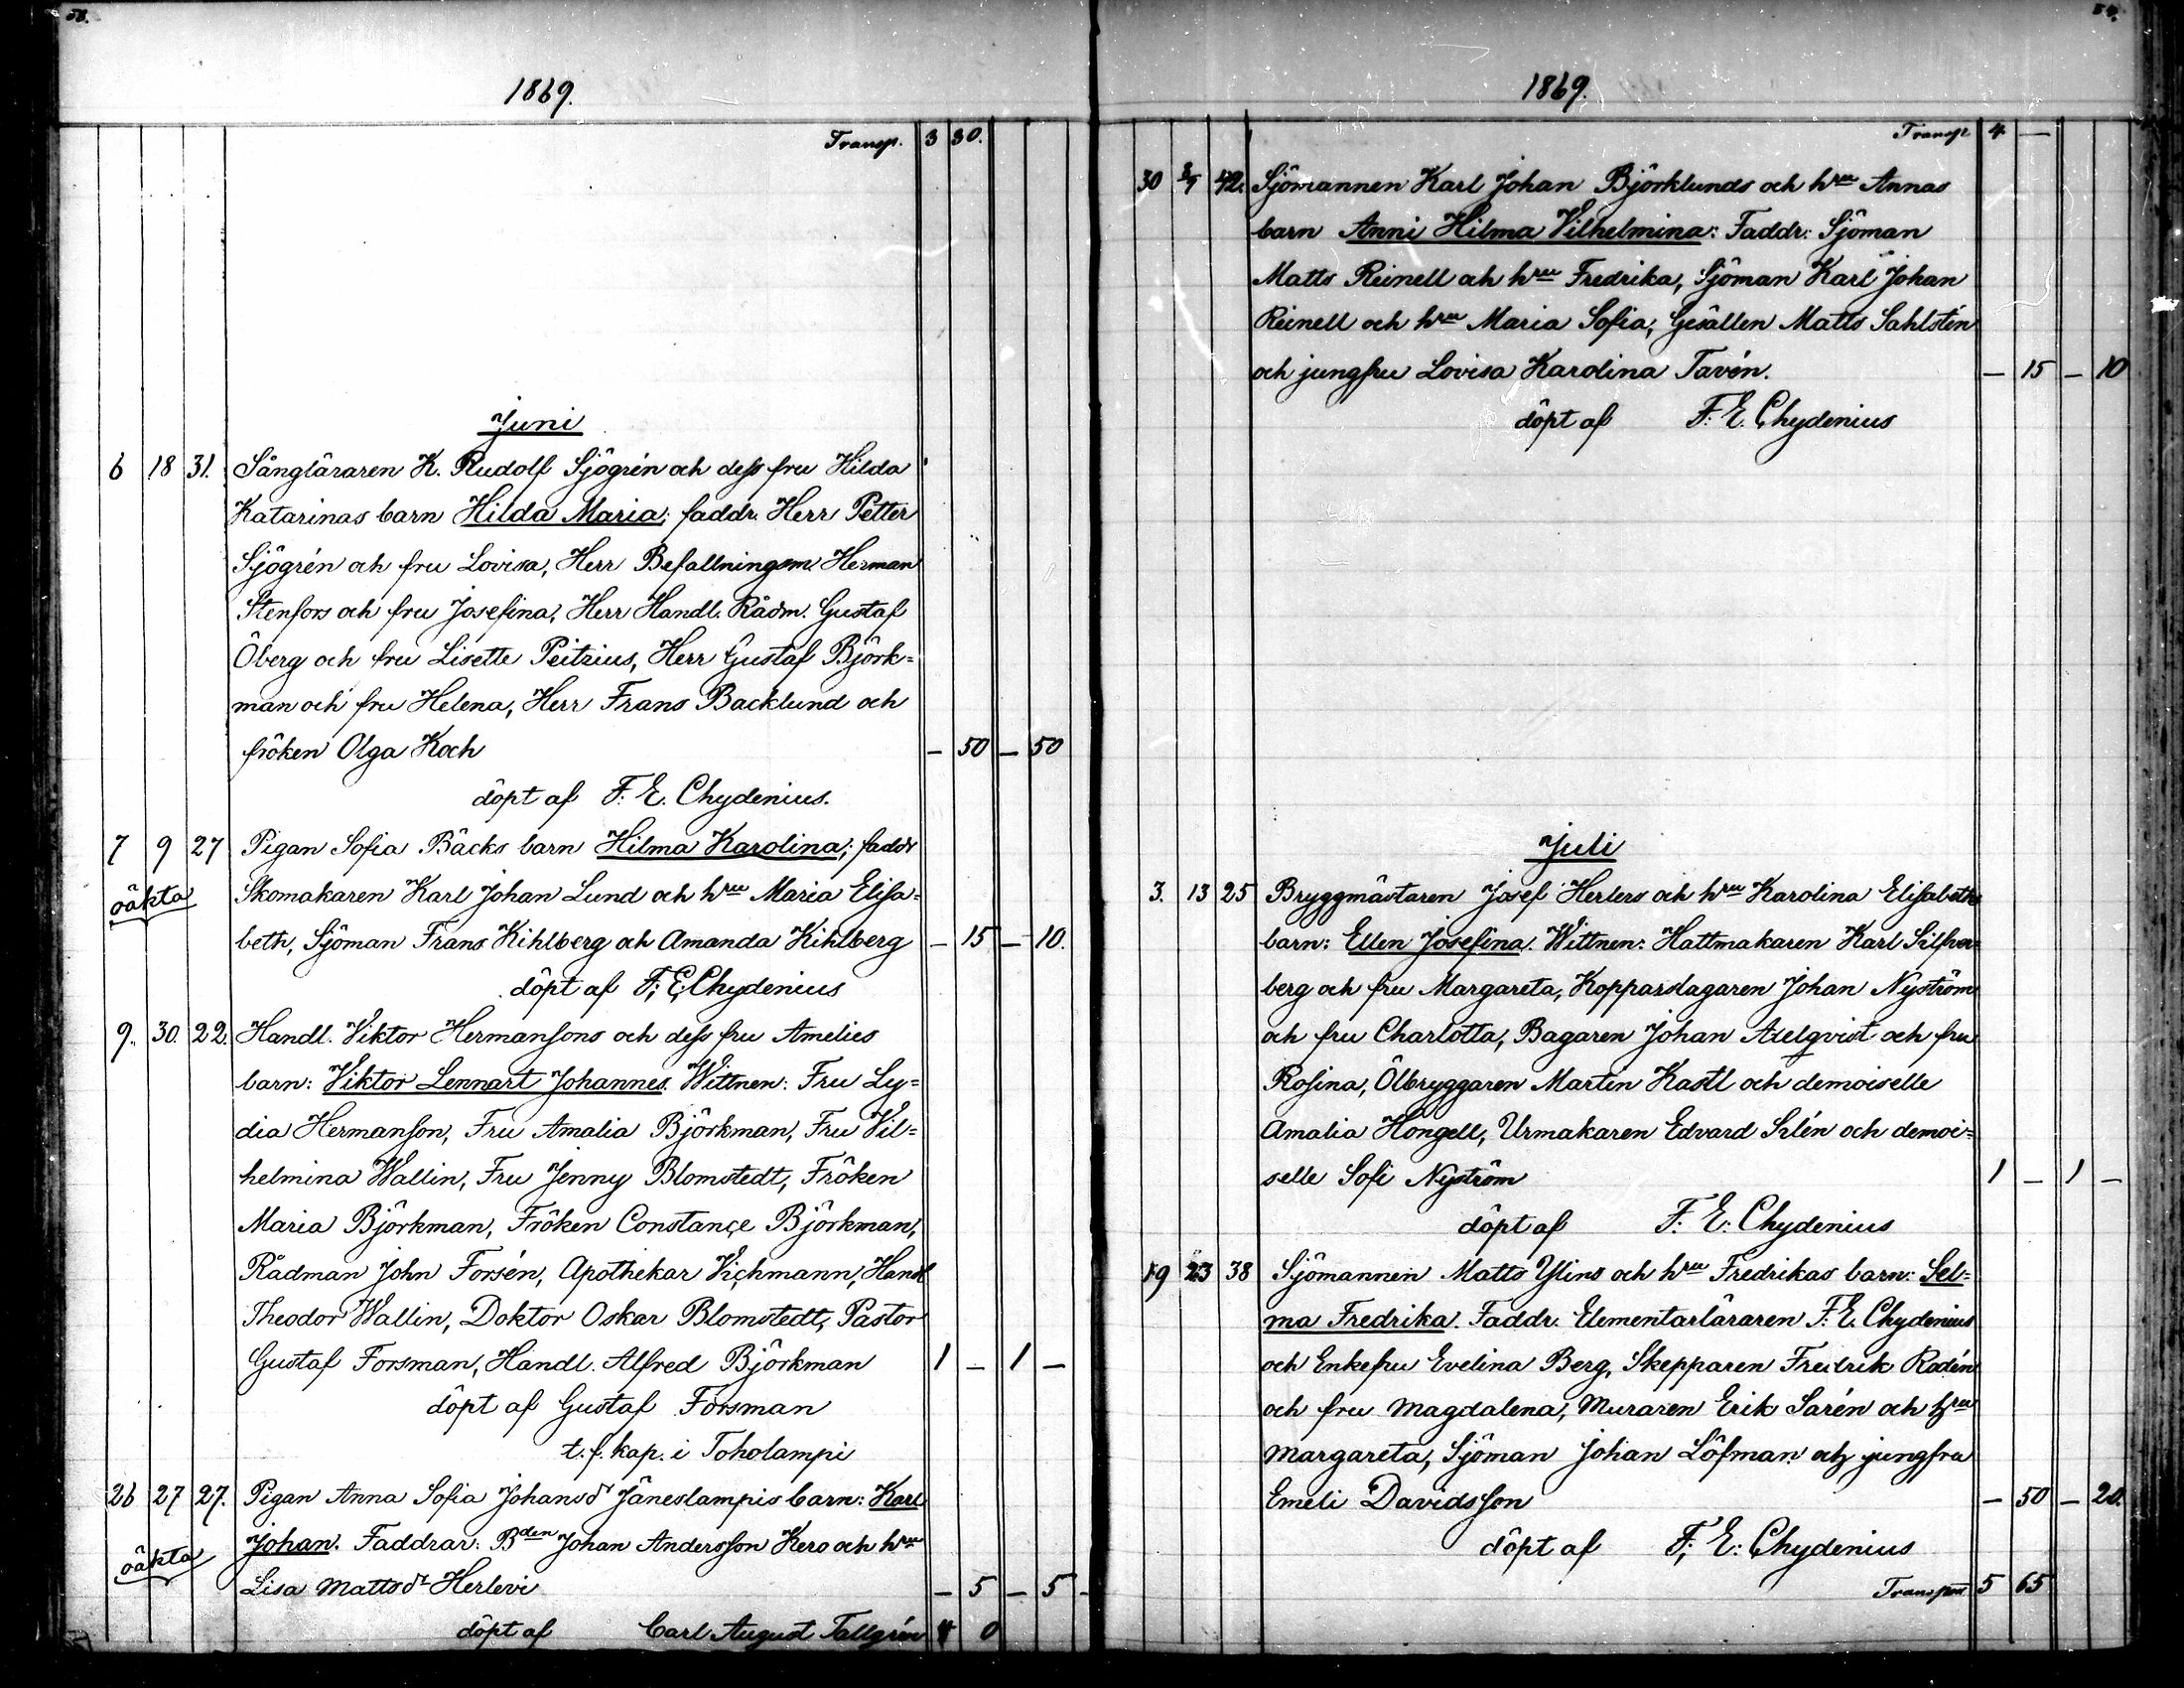 58.
1869.
Transp. 3 30.
Juni
6 18 31. Sångläraren K. Rudolf Sjögrén och dess fru Hilda
Katarinas barn Hilda Maria; faddr. Herr Petter
Sjögrén och fru Lovisa, Herr Befallningsm. Herman
Stenfors och fru Josefina, Herr Handl. Rådm. Gustaf
Öberg och fru Lisette Peitzius, Herr Gustaf Björk=
man och fru Helena, Herr Frans Backlund och
fröken Olga Koch — 50 — 50
döpt af F. E. Chydenius.
7 9 27 Pigan Sofia Bäcks barn Hilma Karolina; faddr
oäkta Skomakaren Karl Johan Lund och hru Maria Elisa=
beth, Sjöman Frans Kihlberg och Amanda Kihlberg — 15 — 10.
döpt af F. E. Chydenius
9. 30. 22. Handl. Viktor Hermansons och dess fru Amelies
barn: Viktor Lennart Johannes. Wittnen: Fru Ly=
dia Hermanson, Fru Amalia Björkman, Fru Vil=
helmina Wallin, Fru Jenny Blomstedt, Fröken
Maria Björkman, Fröken Constance Björkman,
Rådman John Forsén, Apothekar Vichmann, Handl
Theodor Wallin, Doktor Oskar Blomstedt, Pastor
Gustaf Forsman, Handl. Alfred Björkman 1 — 1 —
döpt af Gustaf Forsman
t. f. kap. i Toholampi
26 27 27. Pigan Anna Sofia Johansdr Jäneslampis barn: Karl
Johan. Faddrar: Bden Johan Andersson Kero och hru
oäkta
Lisa Mattsdr Herlevi — 5 — 5 -
döpt af Carl August Tallgrén 4 0
1869.
Transp 4 —
30 42. Sjömannen Karl Johan Björklunds och hru Annas
barn Anni Hilma Vilhelmina: Faddr: Sjöman
Matts Reinell och hru Fredrika, Sjöman Karl Johan
Reinell och hru Maria Sofia, Gesällen Matts Sahlstén
och jungfru Lovisa Karolina Tavén. — 15 — 10
döpt af F. E. Chydenius
Juli
3. 13 25 Bryggmästaren Josef Herlers och hru Karolina Elisabeths
barn: Ellen Josefina. Wittnen: Hattmakaren Karl Silfver=
berg och fru Margareta, Kopparslagaren Johan Nyström
och fru Charlotta, Bagaren Johan Axelqvist och fru
Rosina, Ölbryggaren Martin Kastl och demoiselle
Amalia Hongell, Urmakaren Edvard Silén och demoi=
selle Sofi Nyström 1 — 1 —
döpt af F. E. Chydenius
19 23 38 Sjömannen Matts Ylins och hru Fredrikas barn: Sel=
ma Fredrika. Faddr. Elementarläraren F. E. Chydenius
och Enkefru Evelina Berg, Skepparen Fredrik Rodén
och fru Magdalena, Muraren Erik Sarén och hru
Margareta, Sjöman Johan Löfman och jungfru
Emeli Davidsson — 50 — 20.
döpt af F. E. Chydenius
Transport 5 65